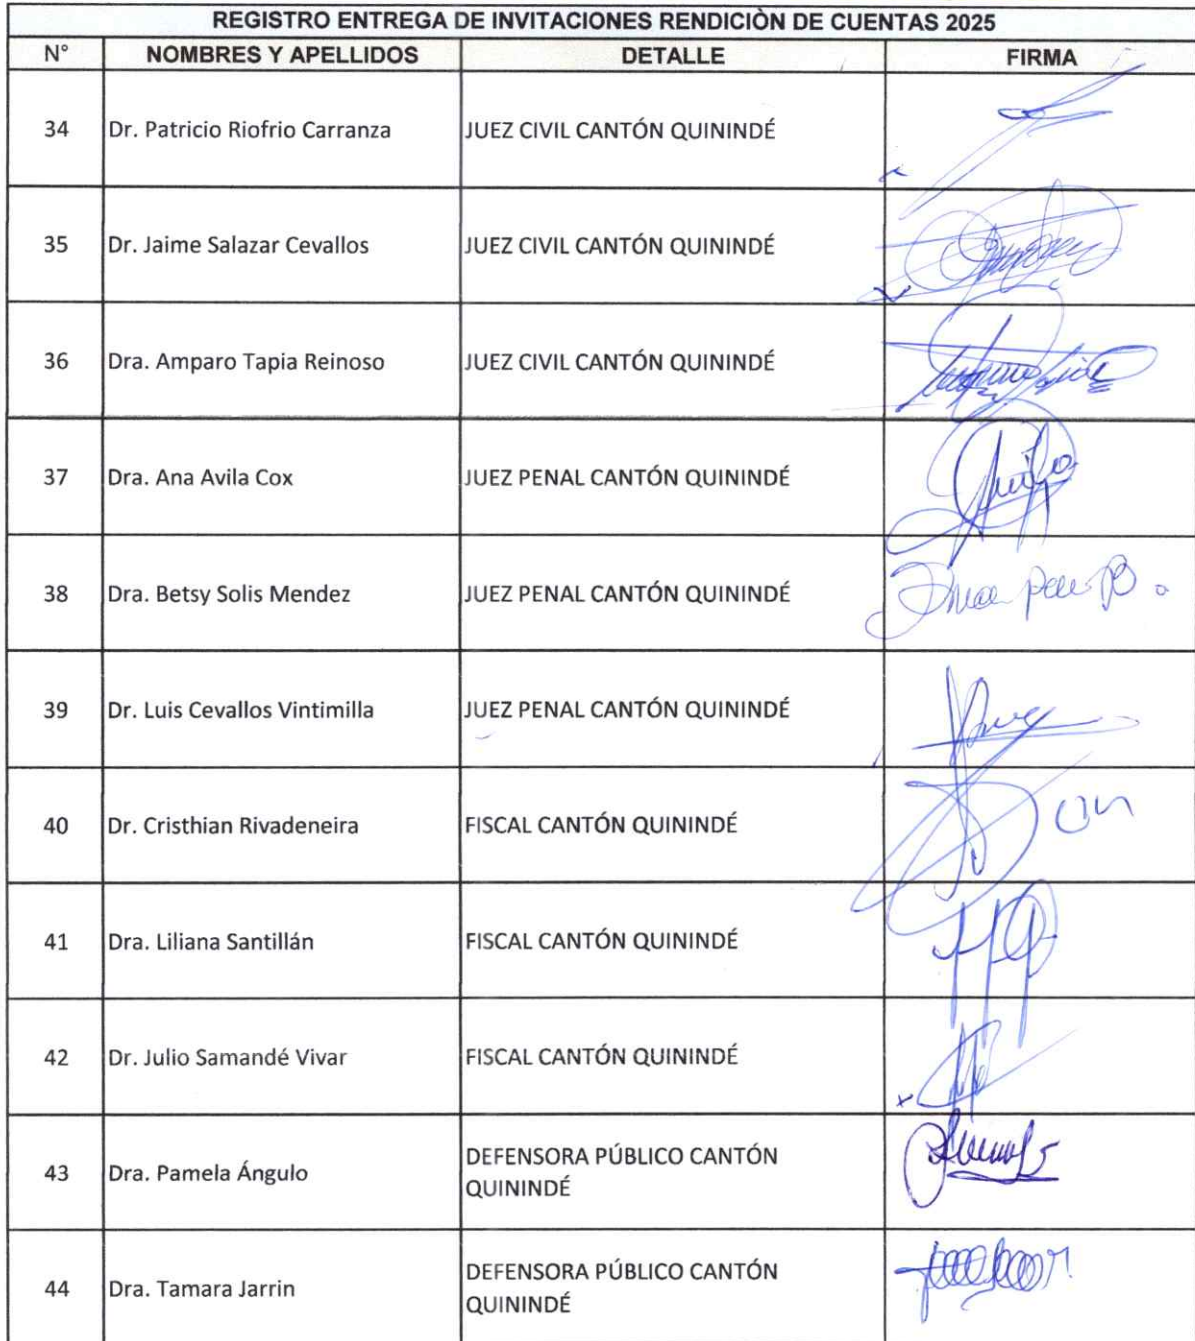 REGISTRO ENTREGA DE INVITACIONES RENDICIÒN DE CUENTAS 2025
N° NOMBRES Y APELLIDOS DETALLE FIRMA
34 Dr. Patricio Riofrio Carranza JUEZ CIVIL CANTÓN QUININDÉ
35 Dr. Jaime Salazar Cevallos JUEZ CIVIL CANTÓN QUININDÉ
36 Dra. Amparo Tapia Reinoso JUEZ CIVIL CANTÓN QUININDÉ
37 Dra. Ana Avila Cox JUEZ PENAL CANTÓN QUININDÉ
38 Dra. Betsy Solis Mendez JUEZ PENAL CANTÓN QUININDÉ
39 Dr. Luis Cevallos Vintimilla JUEZ PENAL CANTÓN QUININDÉ
40 Dr. Cristhian Rivadeneira FISCAL CANTÓN QUININDÉ
41 Dra. Liliana Santillán FISCAL CANTÓN QUININDÉ
42 Dr. Julio Samandé Vivar FISCAL CANTÓN QUININDÉ
43 Dra. Pamela Ángulo DEFENSORA PÚBLICO CANTÓN
QUININDÉ
44 Dra. Tamara Jarrin DEFENSORA PÚBLICO CANTÓN
QUININDÉ